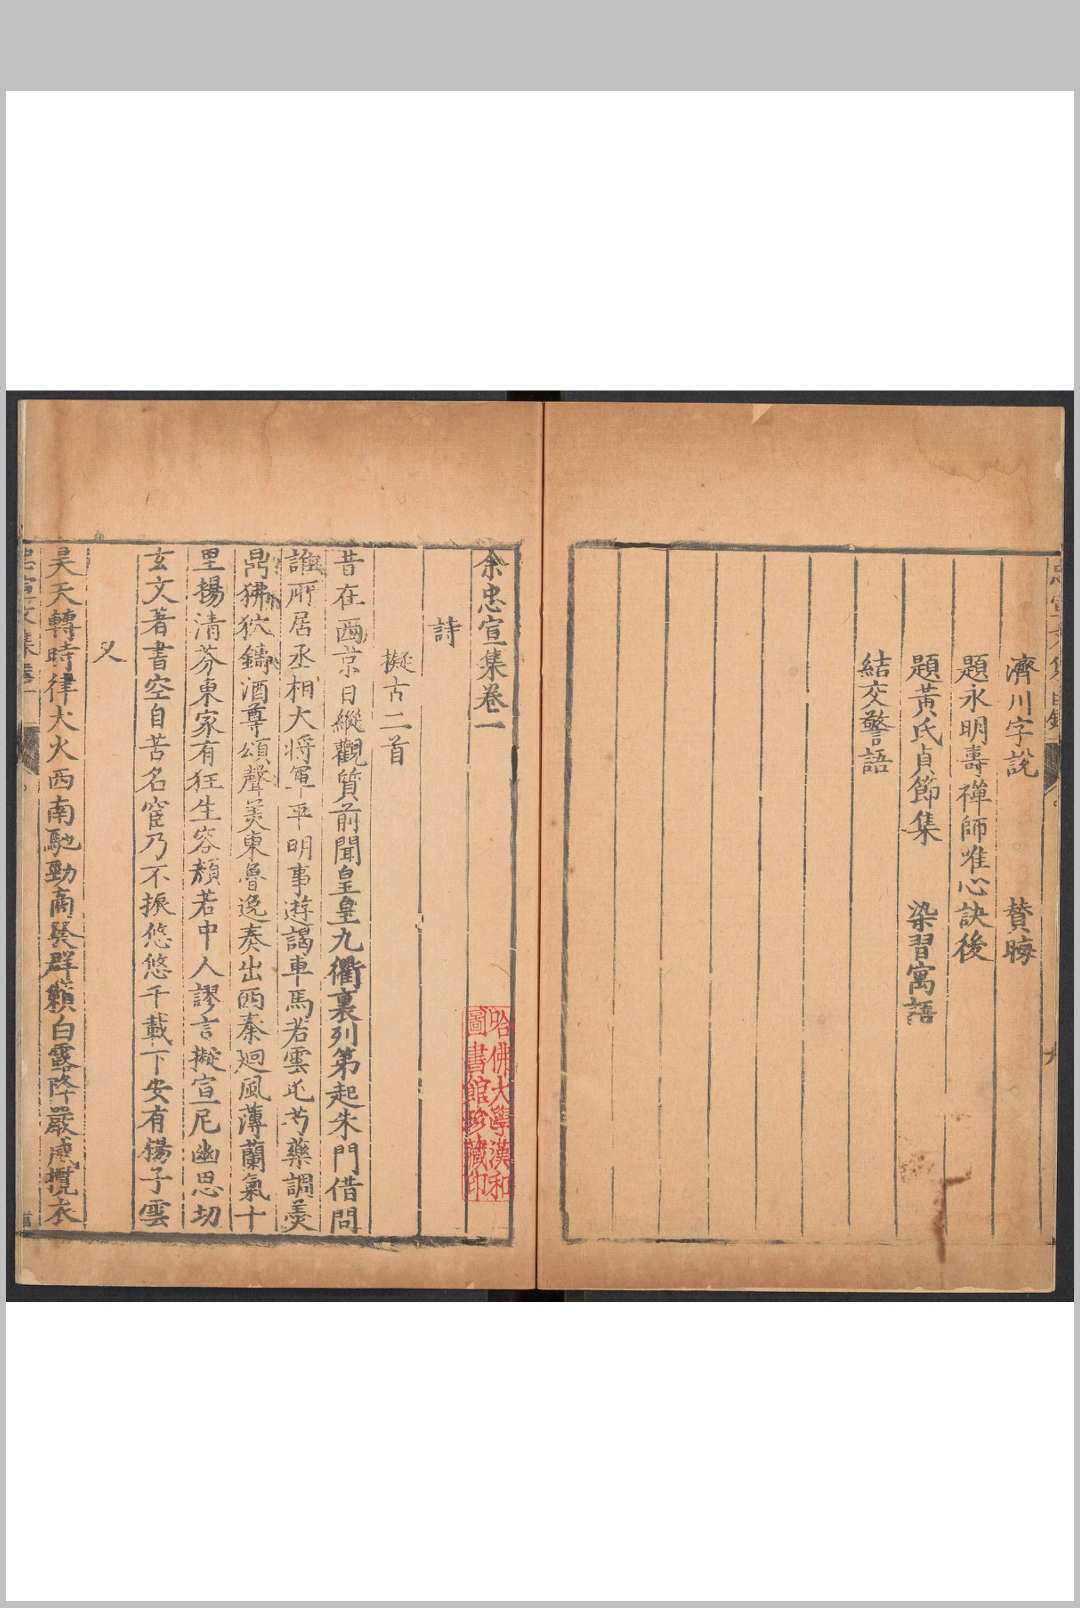 濟川字說　贊晦
題永明壽禪師唯心訣後
題黃氏貞節集　染習寓語
結交警語
余忠宣集卷一
詩
擬古二首
昔在西京日縱觀質前聞皇皇九衢裏列第起朱門借問
誰所居丞相大將軍平明事遊謁車馬若雲屯芍藥調羹
鼎狒狖鑄酒尊頌聲美東魯逸奏出西秦廻風薄蘭氣十
里揚清芬東家有狂生容顏若中人謬言擬宣尼幽思切
玄文著書空自苦名宦乃不振悠悠千載下安有揚子雲
又
昊天轉時律大火西南馳勁商發群籟白露降嚴威攬衣
哈佛大學漢和
圖書館珍藏印